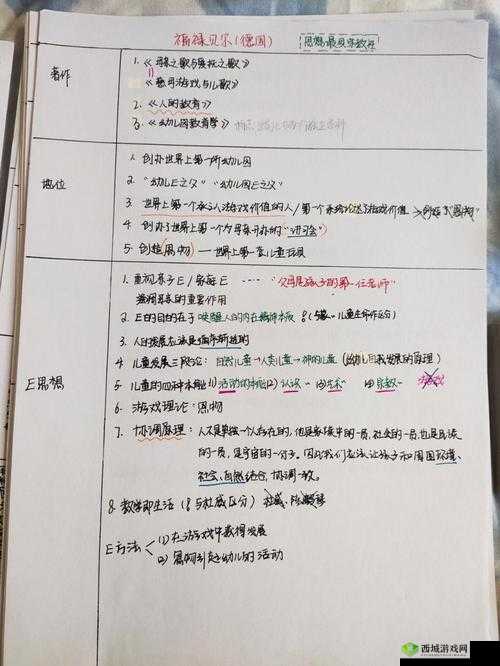 福禄贝尔(德国) 思想最具宗教性
著作
1.《母亲之歌与爱抚之歌》
《慈母游戏与儿歌》
2.《人的教育》
3.《幼儿园教育学》
地位
1. 创办世界上第一所幼儿园
2. "幼儿E之父" "幼儿园E之父"
3. 世界上第一个承认游戏价值的人/第一个系统论述了游戏价值 →创造了"恩物"
4. 创办了世界上第一个为母亲开办的"讲习会"
5. 创造(恩物)——世界上第一套儿童玩具
E思想
1. 重视亲子E/家庭E ····"父母是孩子的第一任老师"
强调母亲的重要作用
2. E的目的在于唤醒人的内在精神本质
3. 人的发展应该是循序前进的
4. 儿童发展三段论:自然儿童→人类儿童→神的儿童(幼儿自我发展的原理)
5. 儿童的四种本能:(1)活动的本能(2)认识~ (3)艺术~ (4)宗教~
6. 游戏理论:恩物
7. 协调原理:人不是单独一个人存在的,他是家族中的一员,社会的一员,也是民族
的一员,是宇宙的一分子。因此我们应该让孩子和周围环境、
社会、自然结合,协调一致。
8. 教学即生活(与杜威区分)杜威、陈鹤琴
E方法
(1) 在游戏中获得发展
(2) 属何引起幼儿的活动
西城游戏网